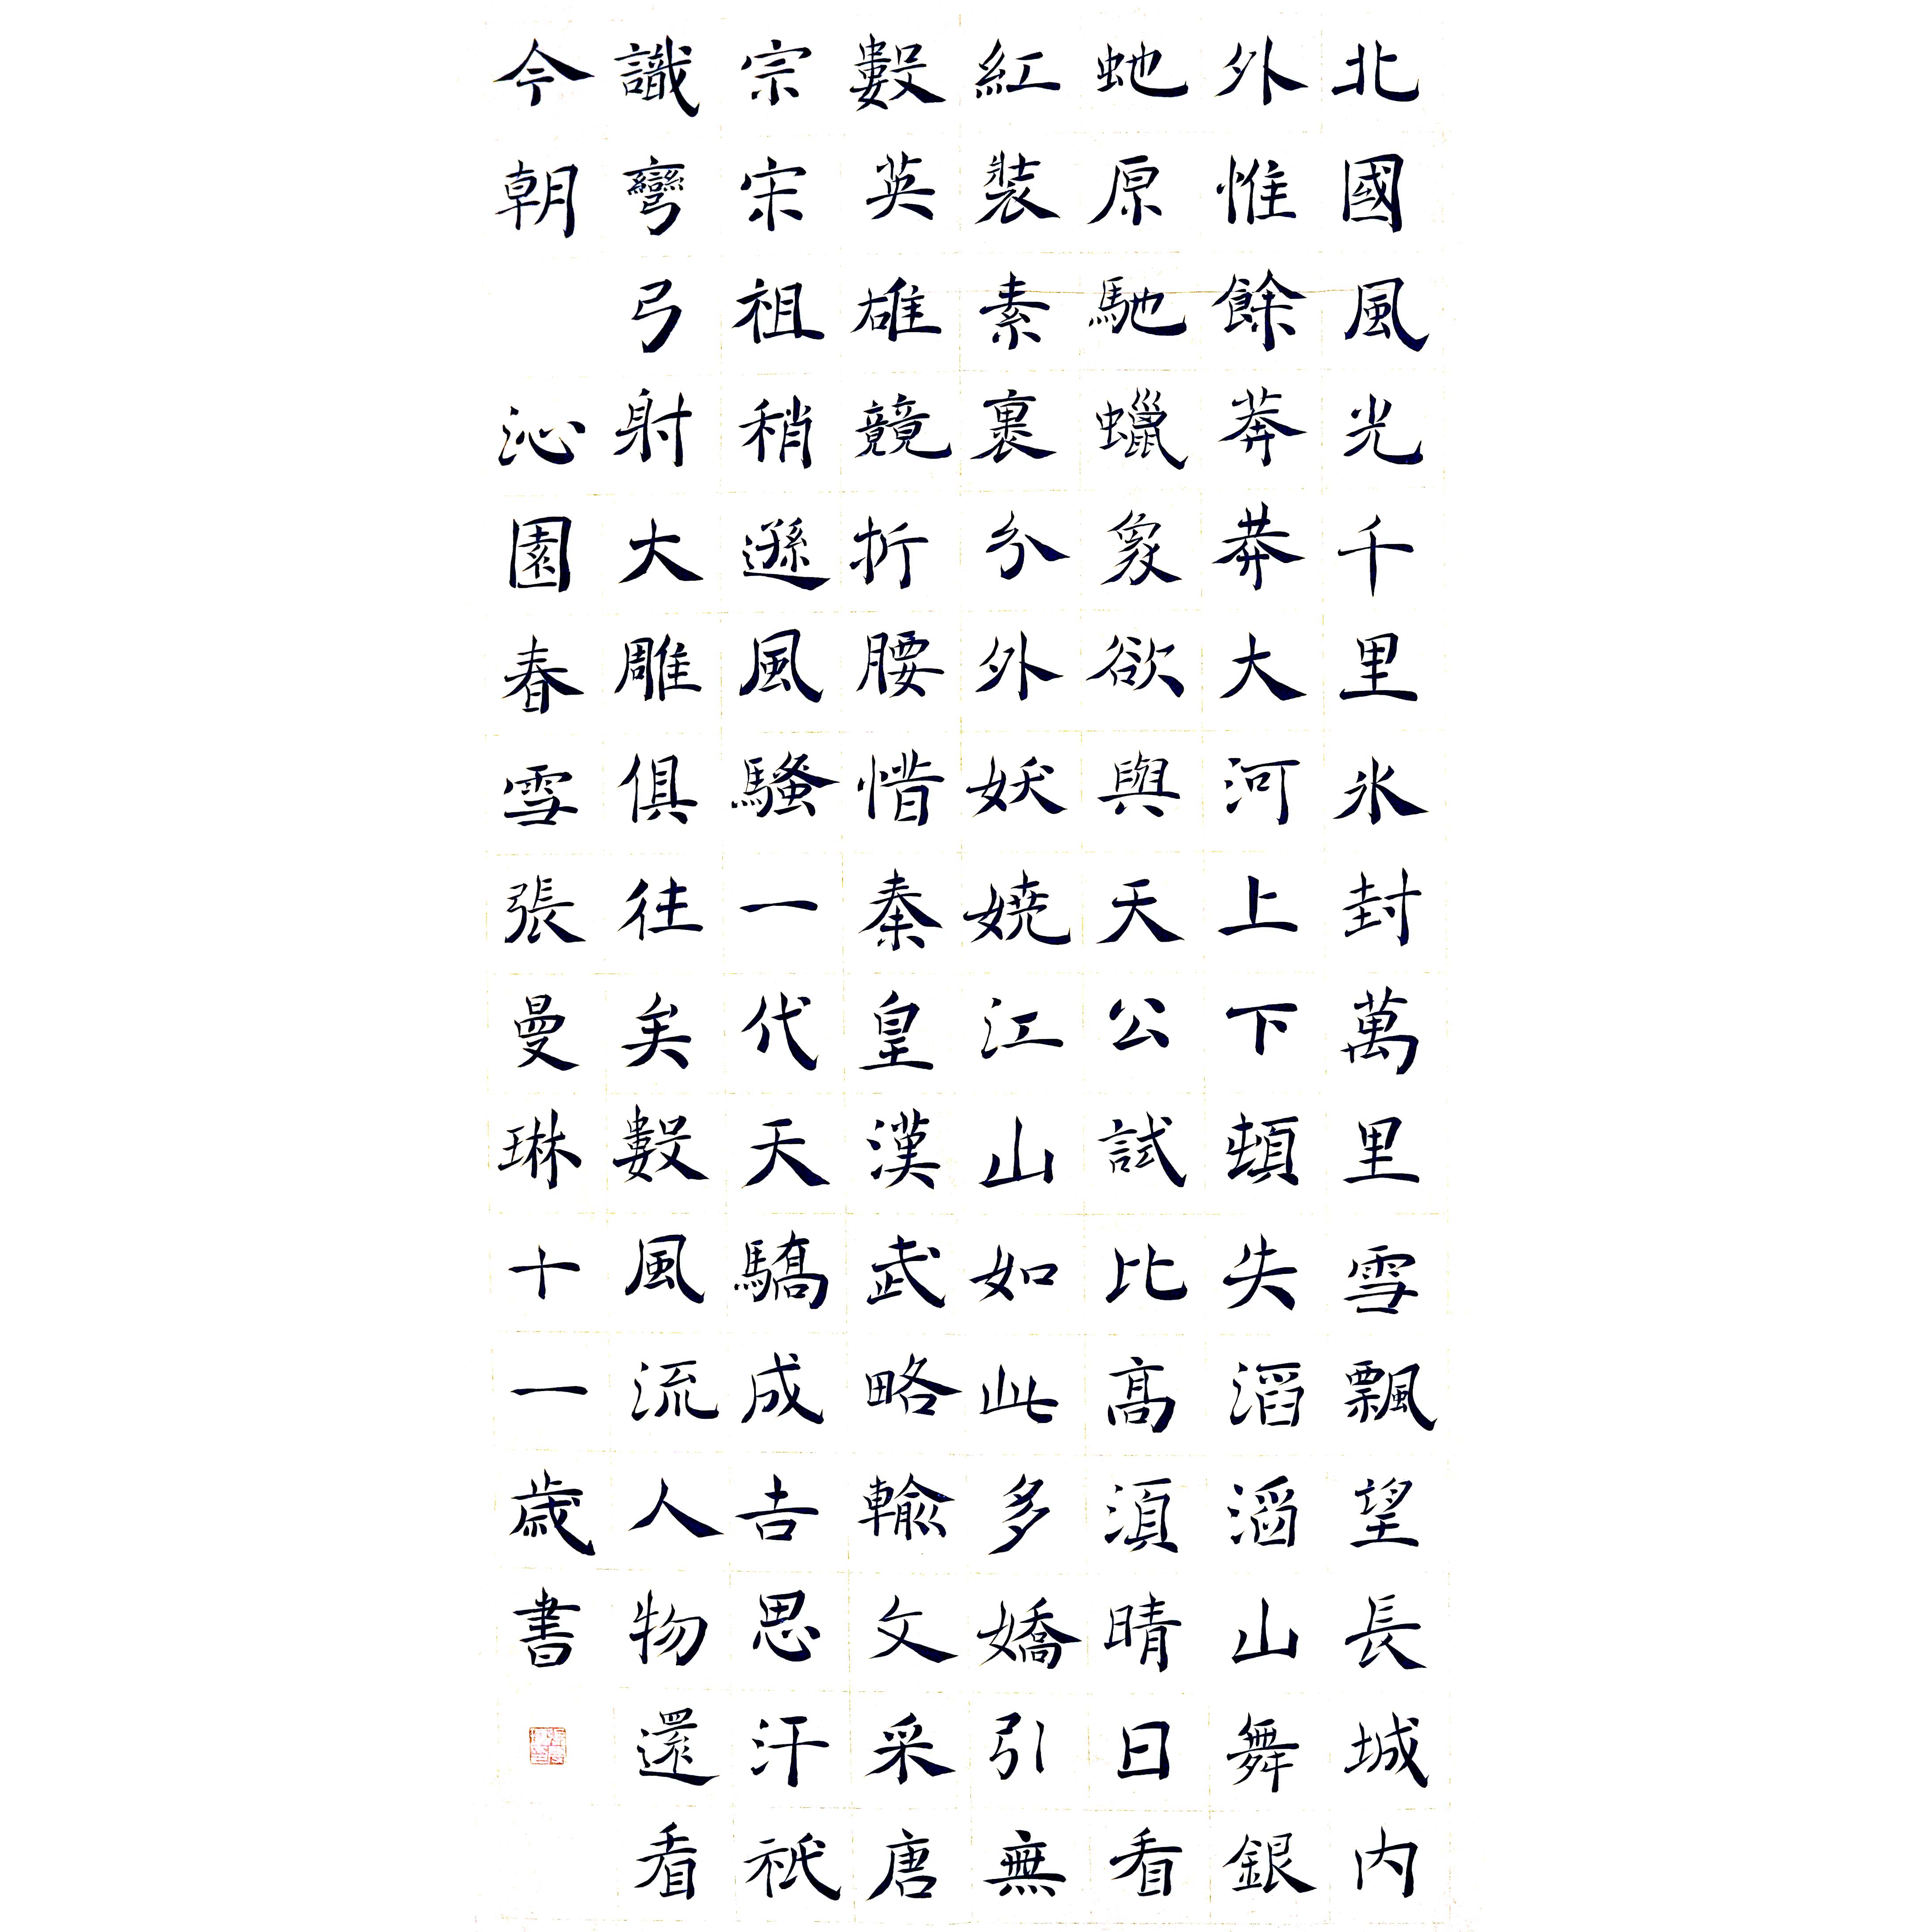 北國風光千里氷封萬里雪飄望長城內
外惟餘莽莽大河上下頓失滔滔山舞銀
虵原馳蠟象欲與天公試比髙湏晴日看
紅裝素裹分外妖嬈江山如此多嬌引無
數英雄競折腰惜秦皇漢武略輸文采唐
宗宋祖稍遜風騷一代天驕成吉思汗祇
識彎弓射大雕俱往矣數風流人物還看
今朝 沁園春雪張曼琳十一歲書